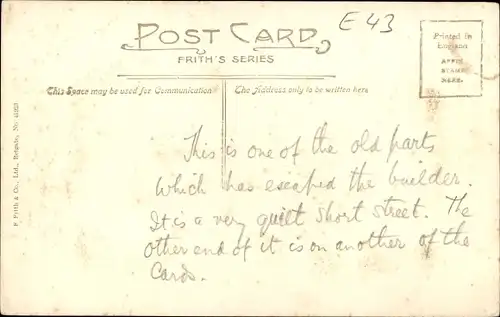 E 43
POST CARD
FRITH'S SERIES
Printed in
England
AFFIX
STAMP
HERE.
This Space may be used for Communication
The Address only to be written here
F Frith & Co., Ltd., Reigate, No
This is one of the old parts
which has escaped the builder.
It is a very quiet short street. The
other end of it is on another of the
Cards.